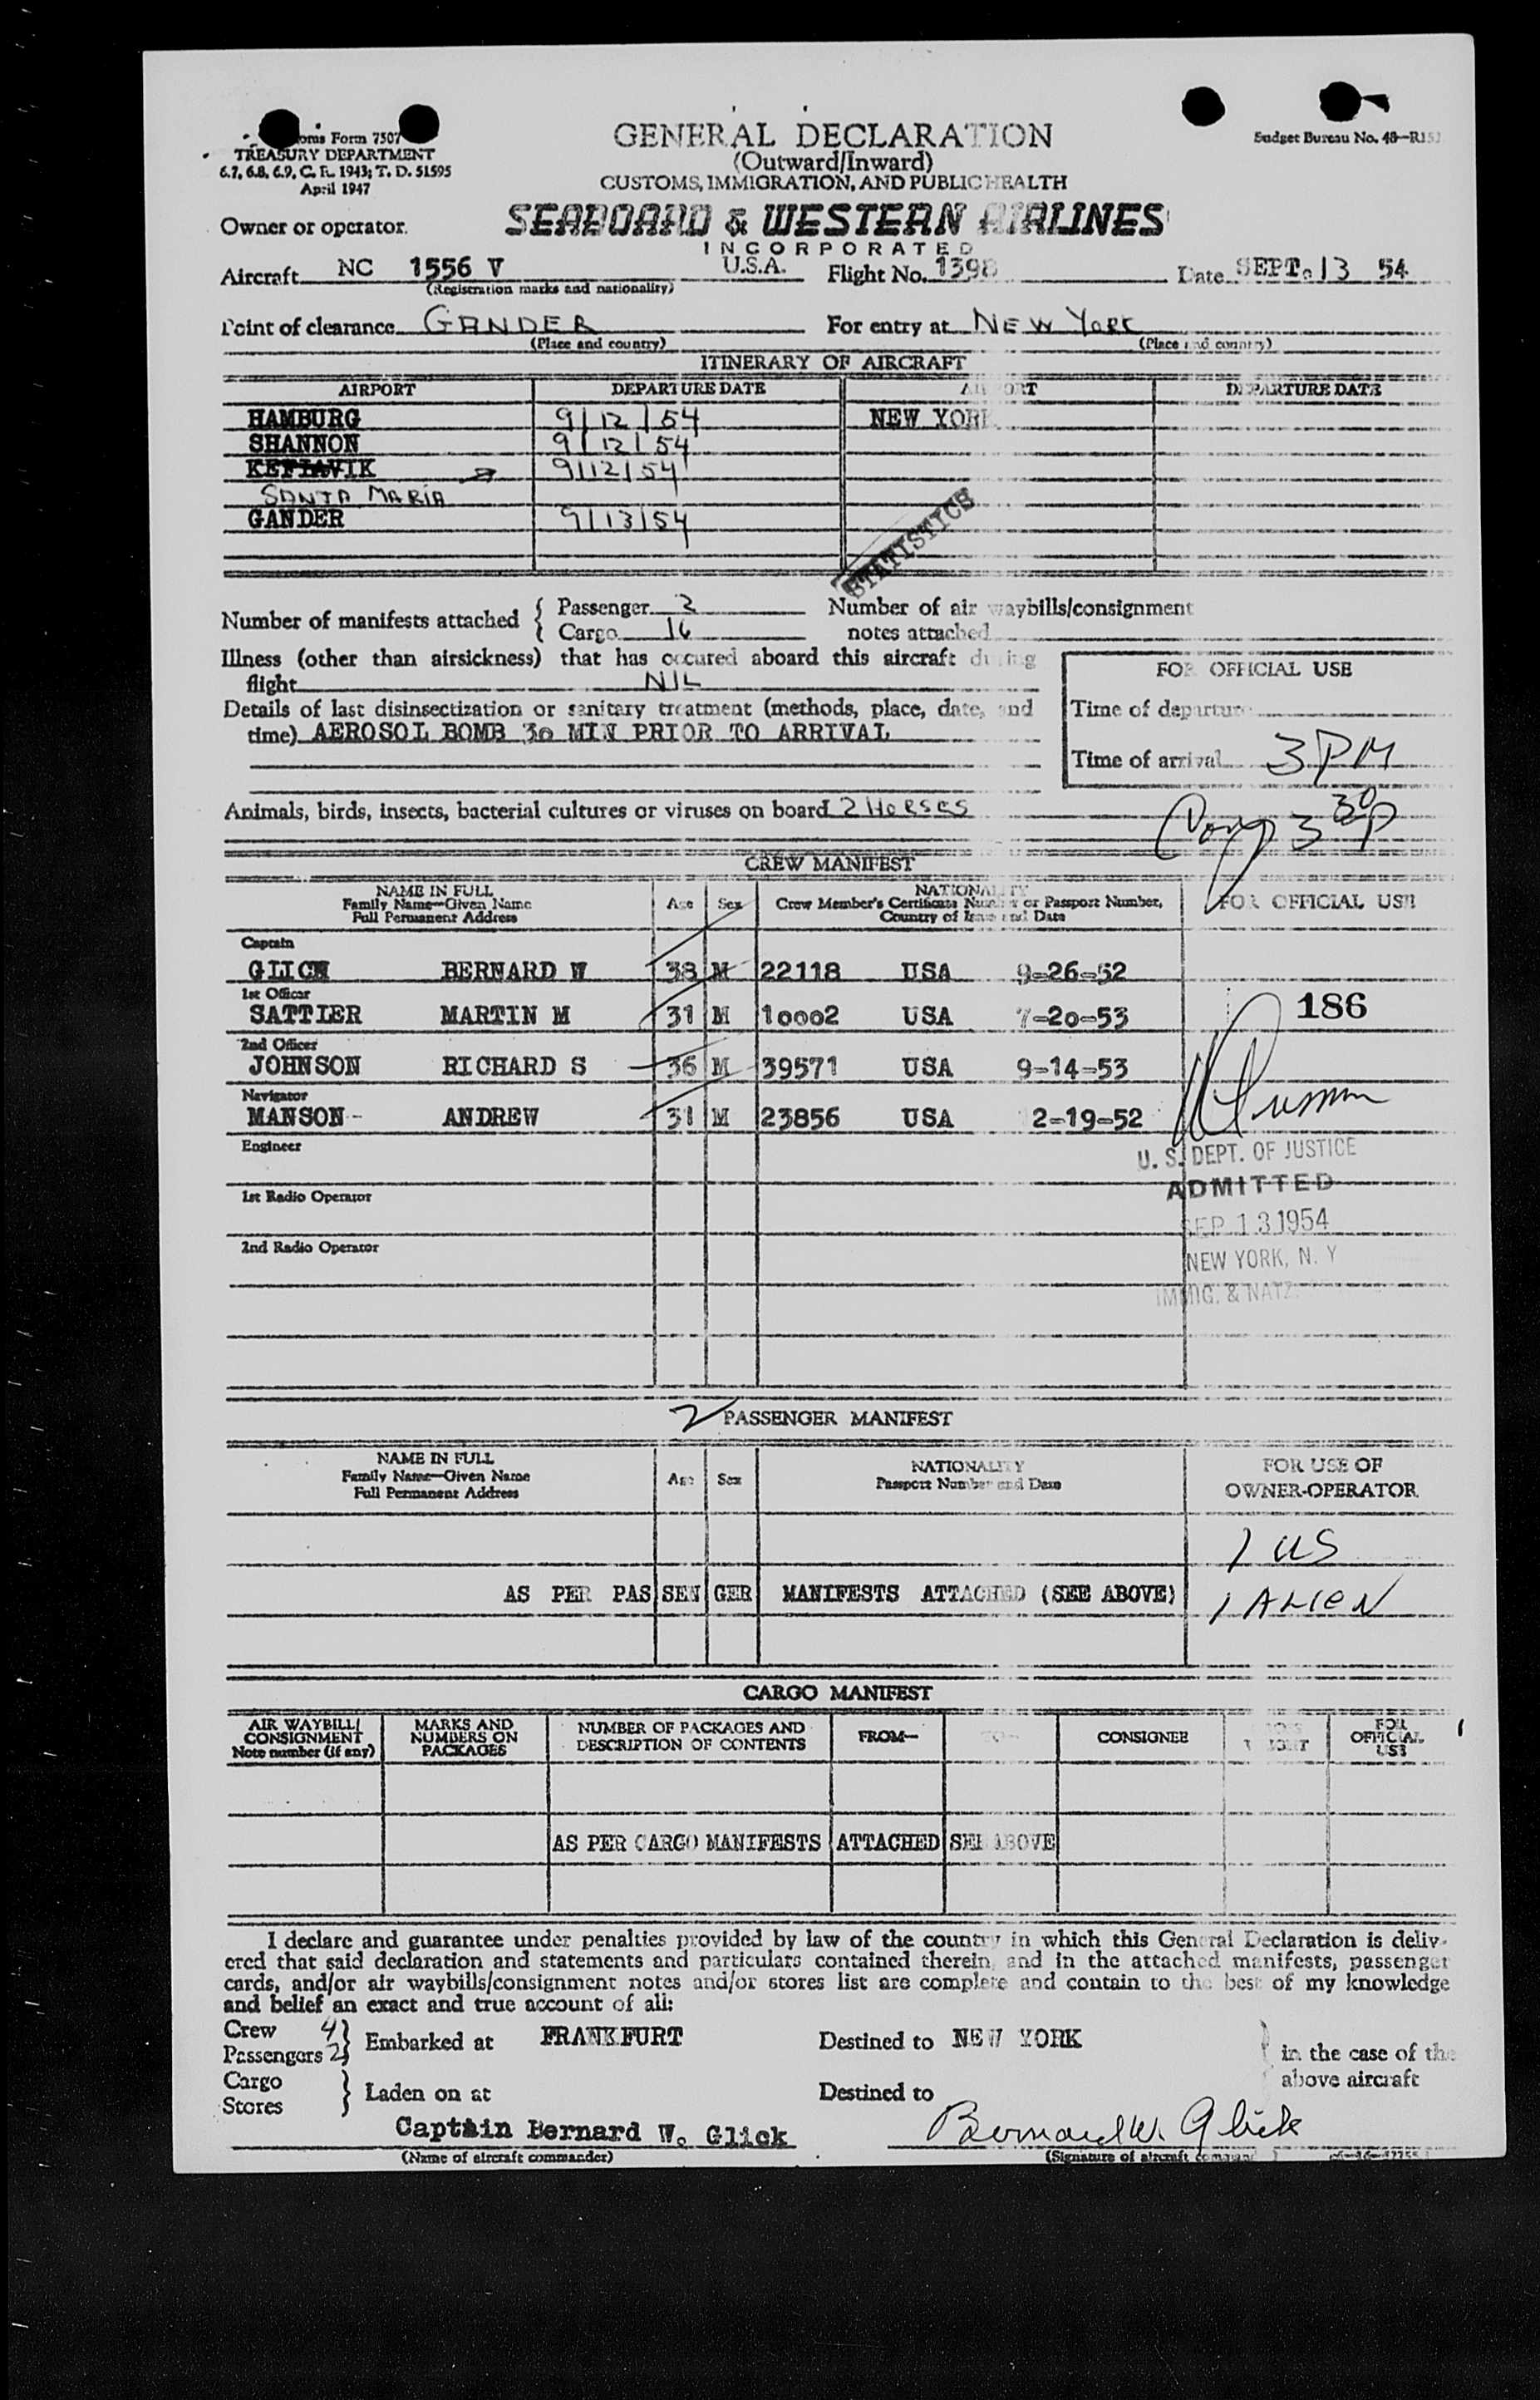 oms Form 7507
TREASURY DEPARTMENT
6.7, 6.8, 6.9, C. R. 1943; T. D. 51595
April 1947
GENERAL DECLARATION
(Outward/Inward)
CUSTOMS, IMMIGRATION, AND PUBLIC HEALTH
Budget Bureau No. 48-R151
Owner or operator. SEABOARD & WESTERN AIRLINES
INCORPORATED
Aircraft NC 1556 V U.S.A. Flight No. 1398 Date SEPT. 13 54
(Registration marks and nationality)
Point of clearance GANDER For entry at NEW YORK
(Place and country) (Place and country)
ITINERARY OF AIRCRAFT
AIRPORT DEPARTURE DATE AIRPORT DEPARTURE DATE
HAMBURG 9/12/54 NEW YORK
SHANNON 9/12/54
KEFLAVIK 9/12/54
SANTA MARIA
GANDER 9/13/54
STATISTICS
Number of manifests attached { Passenger 2 Number of air waybills/consignment
Cargo 16 notes attached
Illness (other than airsickness) that has occured aboard this aircraft during
flight NIL
FOR OFFICIAL USE
Details of last disinsectization or sanitary treatment (methods, place, date, and
time) AEROSOL BOMB 30 MIN PRIOR TO ARRIVAL
Time of departure
Time of arrival 3PM
Animals, birds, insects, bacterial cultures or viruses on board 2 Horses
3 30P
CREW MANIFEST
NAME IN FULL
Family Name—Given Name
Full Permanent Address
Age Sex
NATIONALITY
Crew Member's Certificate Number or Passport Number,
Country of Issue and Date
FOR OFFICIAL USE
Captain
GLICK BERNARD W 38 M 22118 USA 9-26-52
1st Officer
SATTLER MARTIN M 31 M 10002 USA 7-20-53
186
2nd Officer
JOHNSON RICHARD S 36 M 39571 USA 9-14-53
Navigator
MANSON- ANDREW 31 M 23856 USA 2-19-52
Engineer
U. S. DEPT. OF JUSTICE
1st Radio Operator
ADMITTED
SEP 13 1954
2nd Radio Operator
NEW YORK, N. Y
IMMIG. & NATZ.
2 PASSENGER MANIFEST
NAME IN FULL
Family Name—Given Name
Full Permanent Address
Age Sex
NATIONALITY
Passport Number and Date
FOR USE OF
OWNER-OPERATOR
1 US
AS PER PASSENGER MANIFESTS ATTACHED (SEE ABOVE)
1 ALIEN
CARGO MANIFEST
AIR WAYBILL/
CONSIGNMENT
Note number (if any)
MARKS AND
NUMBERS ON
PACKAGES
NUMBER OF PACKAGES AND
DESCRIPTION OF CONTENTS
FROM—
TO—
CONSIGNEE
GROSS
WEIGHT
FOR
OFFICIAL
USE
AS PER CARGO MANIFESTS ATTACHED SEE ABOVE
I declare and guarantee under penalties provided by law of the country in which this General Declaration is deliv-
ered that said declaration and statements and particulars contained therein, and in the attached manifests, passenger
cards, and/or air waybills/consignment notes and/or stores list are complete and contain to the best of my knowledge
and belief an exact and true account of all:
Crew 4
Passengers 2 } Embarked at FRANKFURT Destined to NEW YORK
in the case of the
above aircraft
Cargo
Stores } Laden on at Destined to
Captain Bernard W. Glick Bernard W. Glick
(Name of aircraft commander) (Signature of aircraft commander)